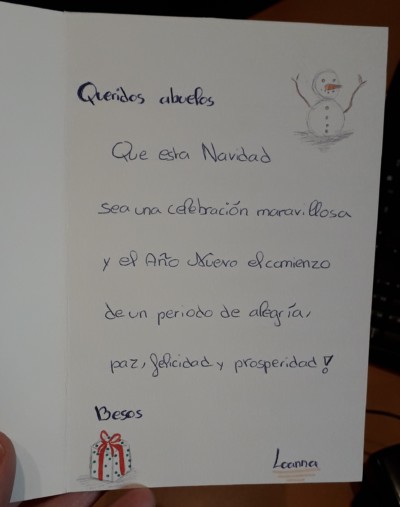 Queridos abuelos
Que esta Navidad
sea una celebración maravillosa
y el Año Nuevo el comienzo
de un periodo de alegría,
paz, felicidad y prosperidad!
Besos
Loanna